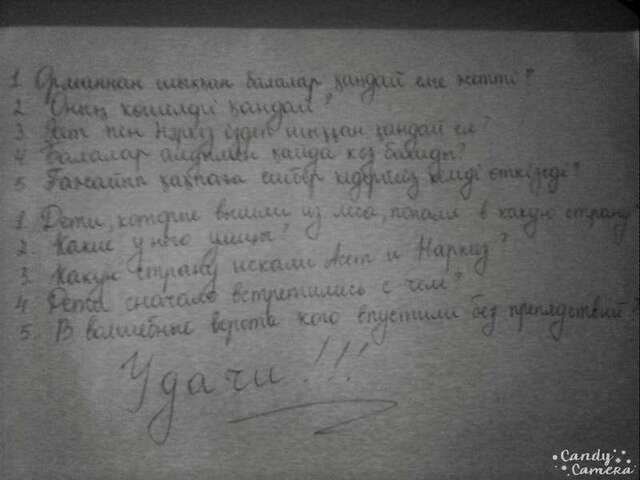 1 Орманнан шыққан балалар қандай елге кетті?
2 Оның көшелері қандай?
3 Әсет пен Наркиз іздеп шыққан қандай ел?
4 Балалар алдымен қайда кез болады?
5 Ғажайып қақпаға сиқыр кедергісіз кімді өткізеді?
1. Дети, которые вышли из леса, попали в какую страну
2. Какие у него улицы?
3. Какую страну искали Асет и Наркиз?
4 Дети сначало встретились с чем?
5. В волшебные ворота кого впустили без препядствий?
Удачи!!!
Candy
Camera